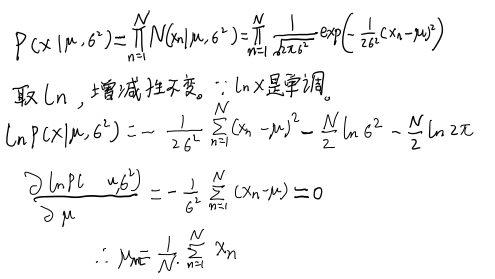 P(X|μ,6²)=∏_{n=1}^{N} N(xn|μ,6²)=∏_{n=1}^{N} 1/√(2π6²) exp(-1/(26²)(xn-μ)²)
取ln，增减性不变。∵ lnx是单调。
ln P(X|μ,6²)=-1/(26²) ∑_{n=1}^{N}(xn-μ)²-N/2 ln 6²-N/2 ln 2π
∂ ln P( μ,6²)/∂μ=-1/6² ∑_{n=1}^{N}(xn-μ)=0
∴ = 1/N. ∑_{n=1}^{N} xn